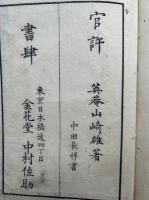 官許
英菴山崎雄著
中田長祥書
書肆
東京日本橋通四丁目
金花堂 中村佐助